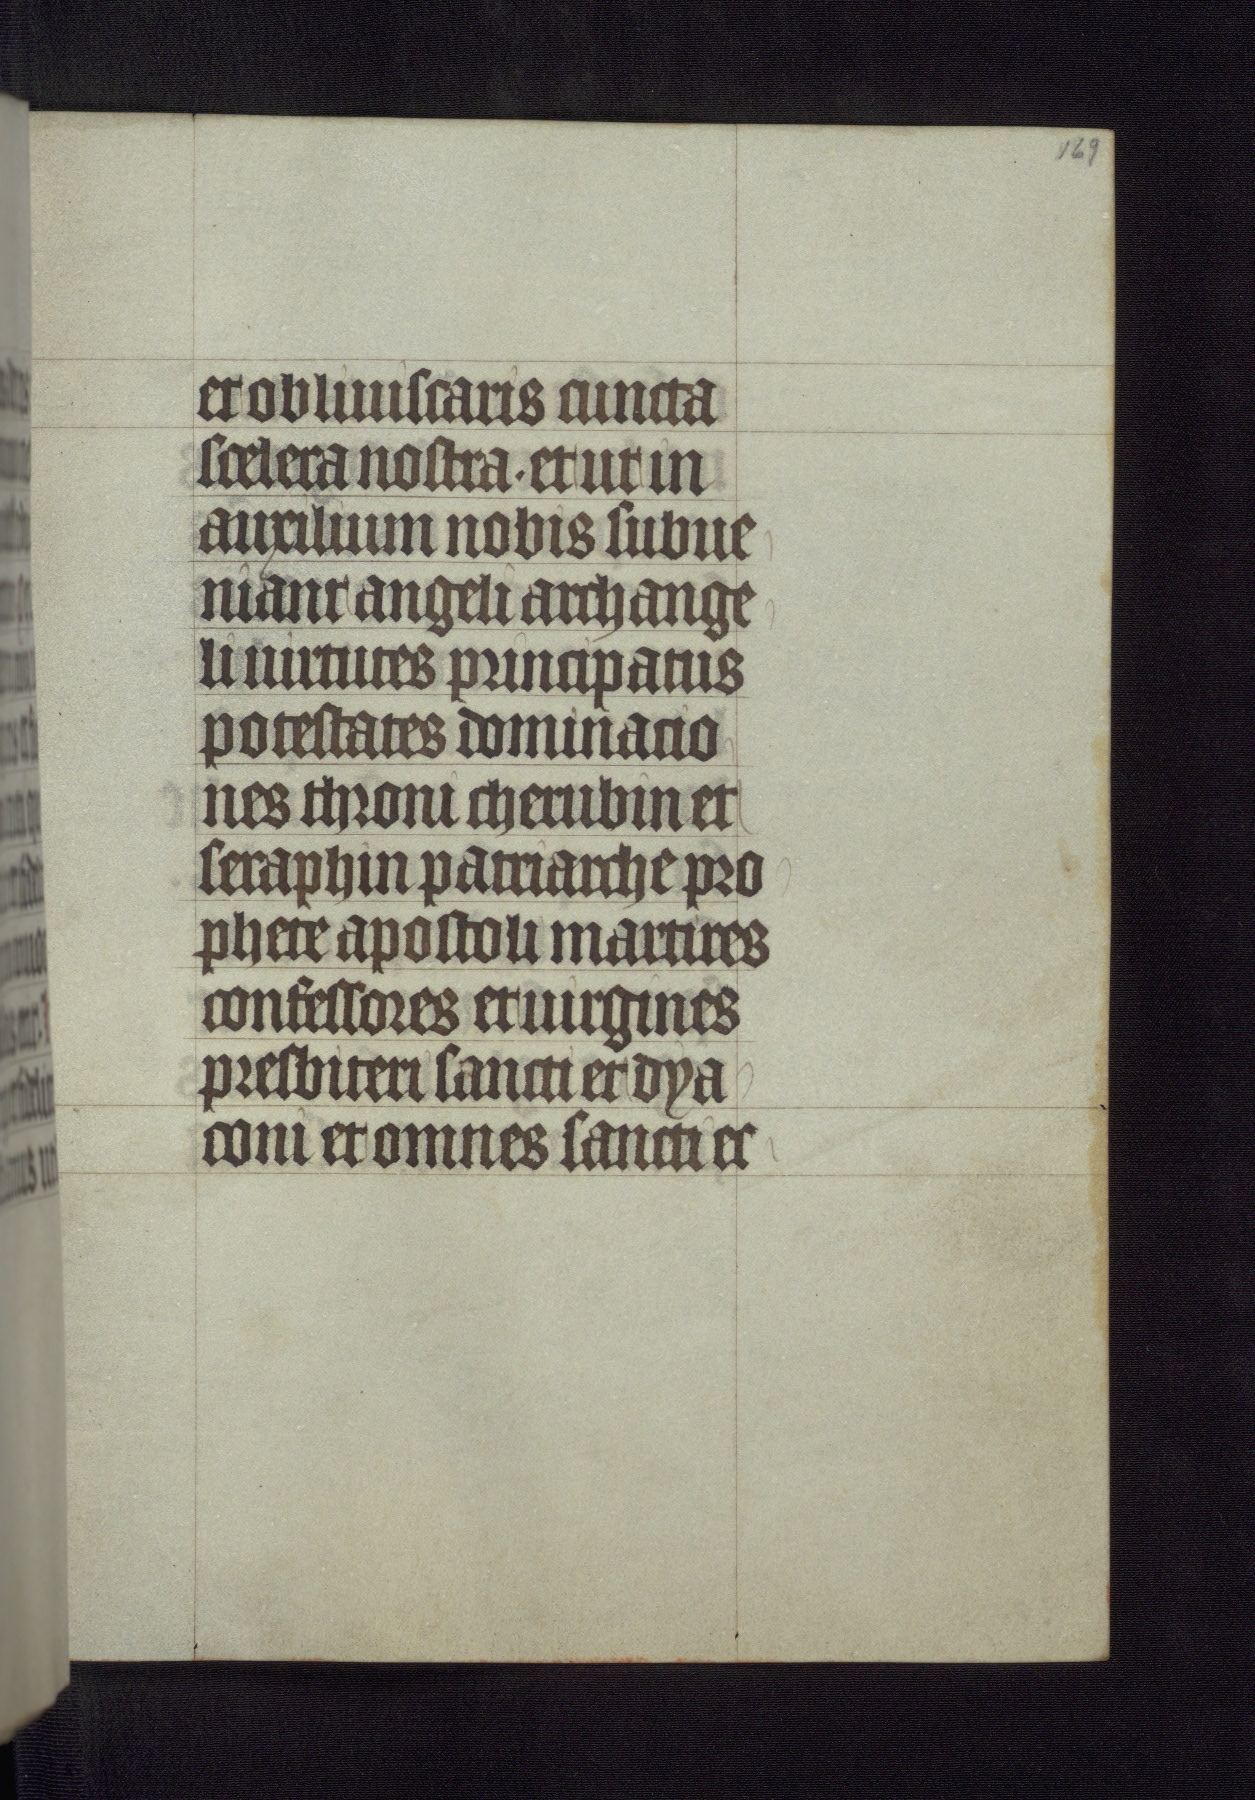 169
et obliuiscaris cuncta
scelera nostra · et ut in
auxilium nobis subue
niant angeli archange
li uirtutes principatus
potestates dominacio
nes throni cherubin et
seraphin patriarche pro
phete apostoli martires
confessores et uirgines
presbiteri sancti et dya
coni et omnes sancti et